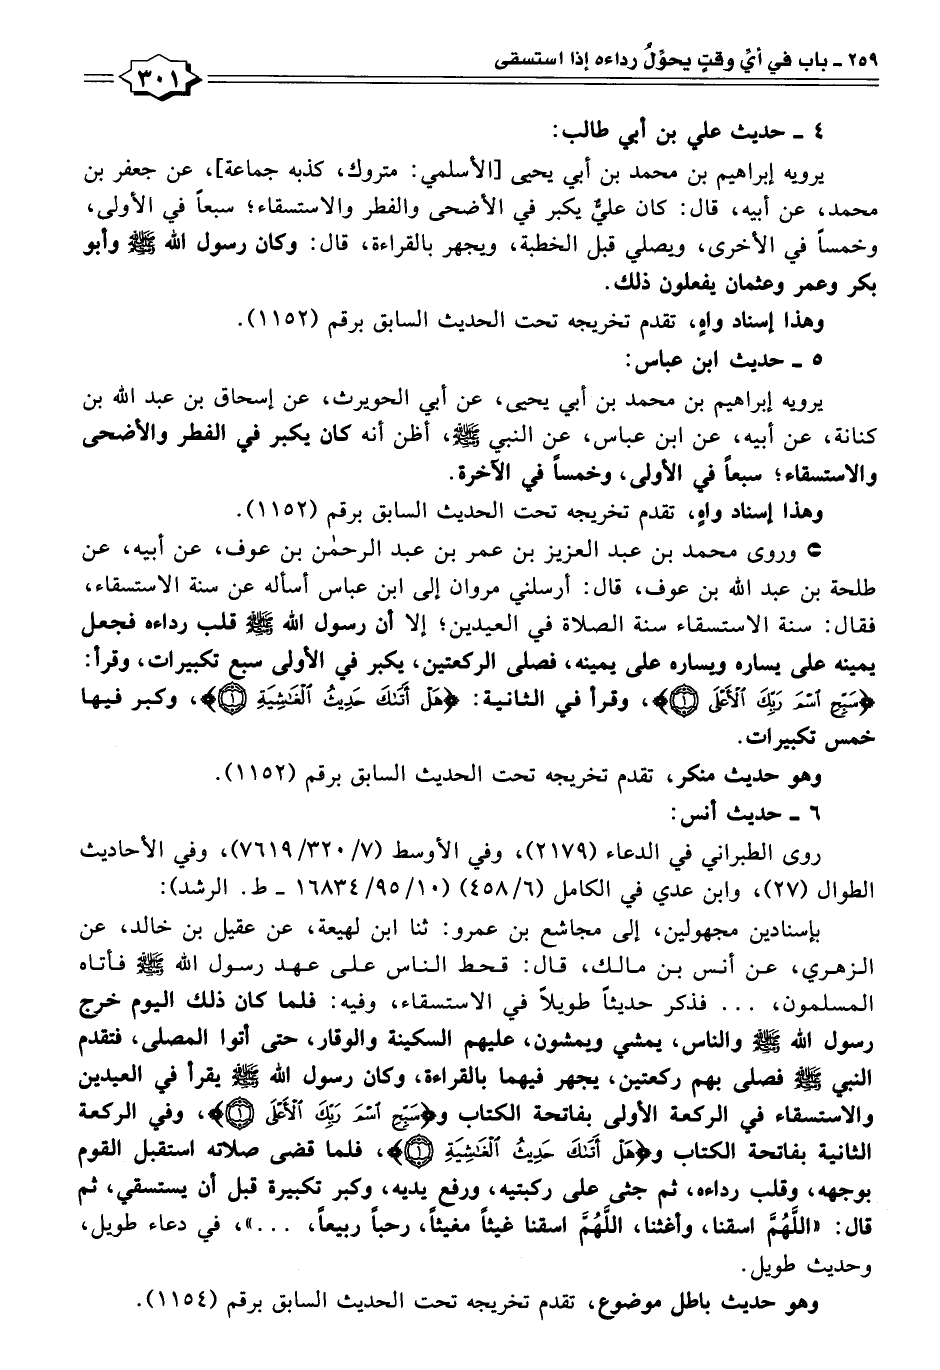 ٢٥٩ ـ باب في أيِّ وقتٍ يحوِّلُ رداءه إذا استسقى
٣٠١
٤ ـ حديث علي بن أبي طالب:
يرويه إبراهيم بن محمد بن أبي يحيى [الأسلمي: متروك، كذبه جماعة]، عن جعفر بن
محمد، عن أبيه، قال: كان عليٌّ يكبر في الأضحى والفطر والاستسقاء؛ سبعاً في الأولى،
وخمساً في الأخرى، ويصلي قبل الخطبة، ويجهر بالقراءة، قال: وكان رسول الله ﷺ وأبو
بكر وعمر وعثمان يفعلون ذلك.
وهذا إسناد واهٍ، تقدم تخريجه تحت الحديث السابق برقم (١١٥٢).
٥ ـ حديث ابن عباس:
يرويه إبراهيم بن محمد بن أبي يحيى، عن أبي الحويرث، عن إسحاق بن عبد الله بن
كنانة، عن أبيه، عن ابن عباس، عن النبي ﷺ، أظن أنه كان يكبر في الفطر والأضحى
والاستسقاء؛ سبعاً في الأولى، وخمساً في الآخرة.
وهذا إسناد واهٍ، تقدم تخريجه تحت الحديث السابق برقم (١١٥٢).
وروى محمد بن عبد العزيز بن عمر بن عبد الرحمٰن بن عوف، عن أبيه، عن
طلحة بن عبد الله بن عوف، قال: أرسلني مروان إلى ابن عباس أسأله عن سنة الاستسقاء،
فقال: سنة الاستسقاء سنة الصلاة في العيدين؛ إلا أن رسول الله ﷺ قلب رداءه فجعل
يمينه على يساره ويساره على يمينه، فصلى الركعتين، يكبر في الأولى سبع تكبيرات، وقرأ:
﴿سَبِّحِ ٱسْمَ رَبِّكَ ٱلْأَعْلَى ۝١﴾، وقرأ في الثانية: ﴿هَلْ أَتَىٰكَ حَدِيثُ ٱلْغَٰشِيَةِ ۝١﴾، وكبر فيها
خمس تكبيرات.
وهو حديث منكر، تقدم تخريجه تحت الحديث السابق برقم (١١٥٢).
٦ ـ حديث أنس:
روى الطبراني في الدعاء (٢١٧٩)، وفي الأوسط (٧/ ٣٢٠/ ٧٦١٩)، وفي الأحاديث
الطوال (٢٧)، وابن عدي في الكامل (٦/ ٤٥٨) (١٠/ ٩٥/ ١٦٨٣٤ ـ ط. الرشد):
بإسنادين مجهولين، إلى مجاشع بن عمرو: ثنا ابن لهيعة، عن عقيل بن خالد، عن
الزهري، عن أنس بن مالك، قال: قحط الناس على عهد رسول الله ﷺ فأتاه
المسلمون، ... فذكر حديثاً طويلاً في الاستسقاء، وفيه: فلما كان ذلك اليوم خرج
رسول الله ﷺ والناس، يمشي ويمشون، عليهم السكينة والوقار، حتى أتوا المصلى، فتقدم
النبي ﷺ فصلى بهم ركعتين، يجهر فيهما بالقراءة، وكان رسول الله ﷺ يقرأ في العيدين
والاستسقاء في الركعة الأولى بفاتحة الكتاب و﴿سَبِّحِ ٱسْمَ رَبِّكَ ٱلْأَعْلَى ۝١﴾، وفي الركعة
الثانية بفاتحة الكتاب و﴿هَلْ أَتَىٰكَ حَدِيثُ ٱلْغَٰشِيَةِ ۝١﴾، فلما قضى صلاته استقبل القوم
بوجهه، وقلب رداءه، ثم جثى على ركبتيه، ورفع يديه، وكبر تكبيرة قبل أن يستسقي، ثم
قال: «اللَّهُمَّ اسقنا، وأغثنا، اللَّهُمَّ اسقنا غيثاً مغيثاً، رحباً ربيعاً، ...»، في دعاء طويل،
وحديث طويل.
وهو حديث باطل موضوع، تقدم تخريجه تحت الحديث السابق برقم (١١٥٤).